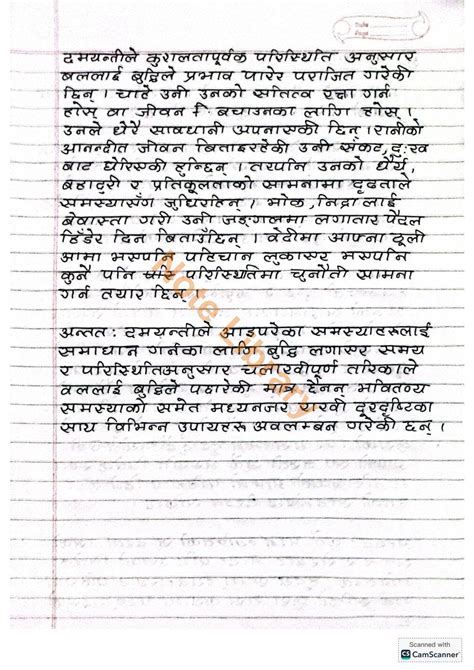 Date
Page
दमयन्तीले कुशलतापूर्वक परिस्थिति अनुसार
बललाई बुद्धिले प्रभाव पारेर पराजित गरेकी
छिन् । चाहे उनी उनको सतित्व रक्षा गर्न
होस् वा जीवन बचाउनका लागि होस् ।
उनले धेरै सावधानी अपनासकी छिन् । रानीको
आनन्दीत जीवन बिताइरहेकी उनी संकट, दुःख
बाट घेरिसकी हुन्छिन् । तरपनि उनको धैर्य,
बहादुरी र प्रतिकूलताको सामनामा दृढताले
समस्यासँग जुधिरहिन् । भोक, निद्रा लाई
बेवास्ता गरी उनी जङ्गलमा लगातार पैदल
हिँडेर दिन बिताउँछिन् । वेदीमा आफ्ना ठूली
आमा भएपनि पहिचान लुकाएर भएपनि
कुनै पनि परिस्थितिमा चुनौती सामना
गर्न तयार छिन् ।
अन्तत : दमयन्तीले आइपरेका समस्याहरूलाई
समाधान गर्नका लागि बुद्धि लगाएर समय
र परिस्थितिअनुसार चलाखीपूर्ण तरिकाले
बललाई बुद्धिले पछारेकी मात्र छैनन् भवितव्य
समस्याको समेत मध्यनजर गरवी दूरदृष्टिका
साथ विभिन्न उपायहरू अवलम्बन गरेकी छन् ।
Note Library
Scanned with
CS CamScanner